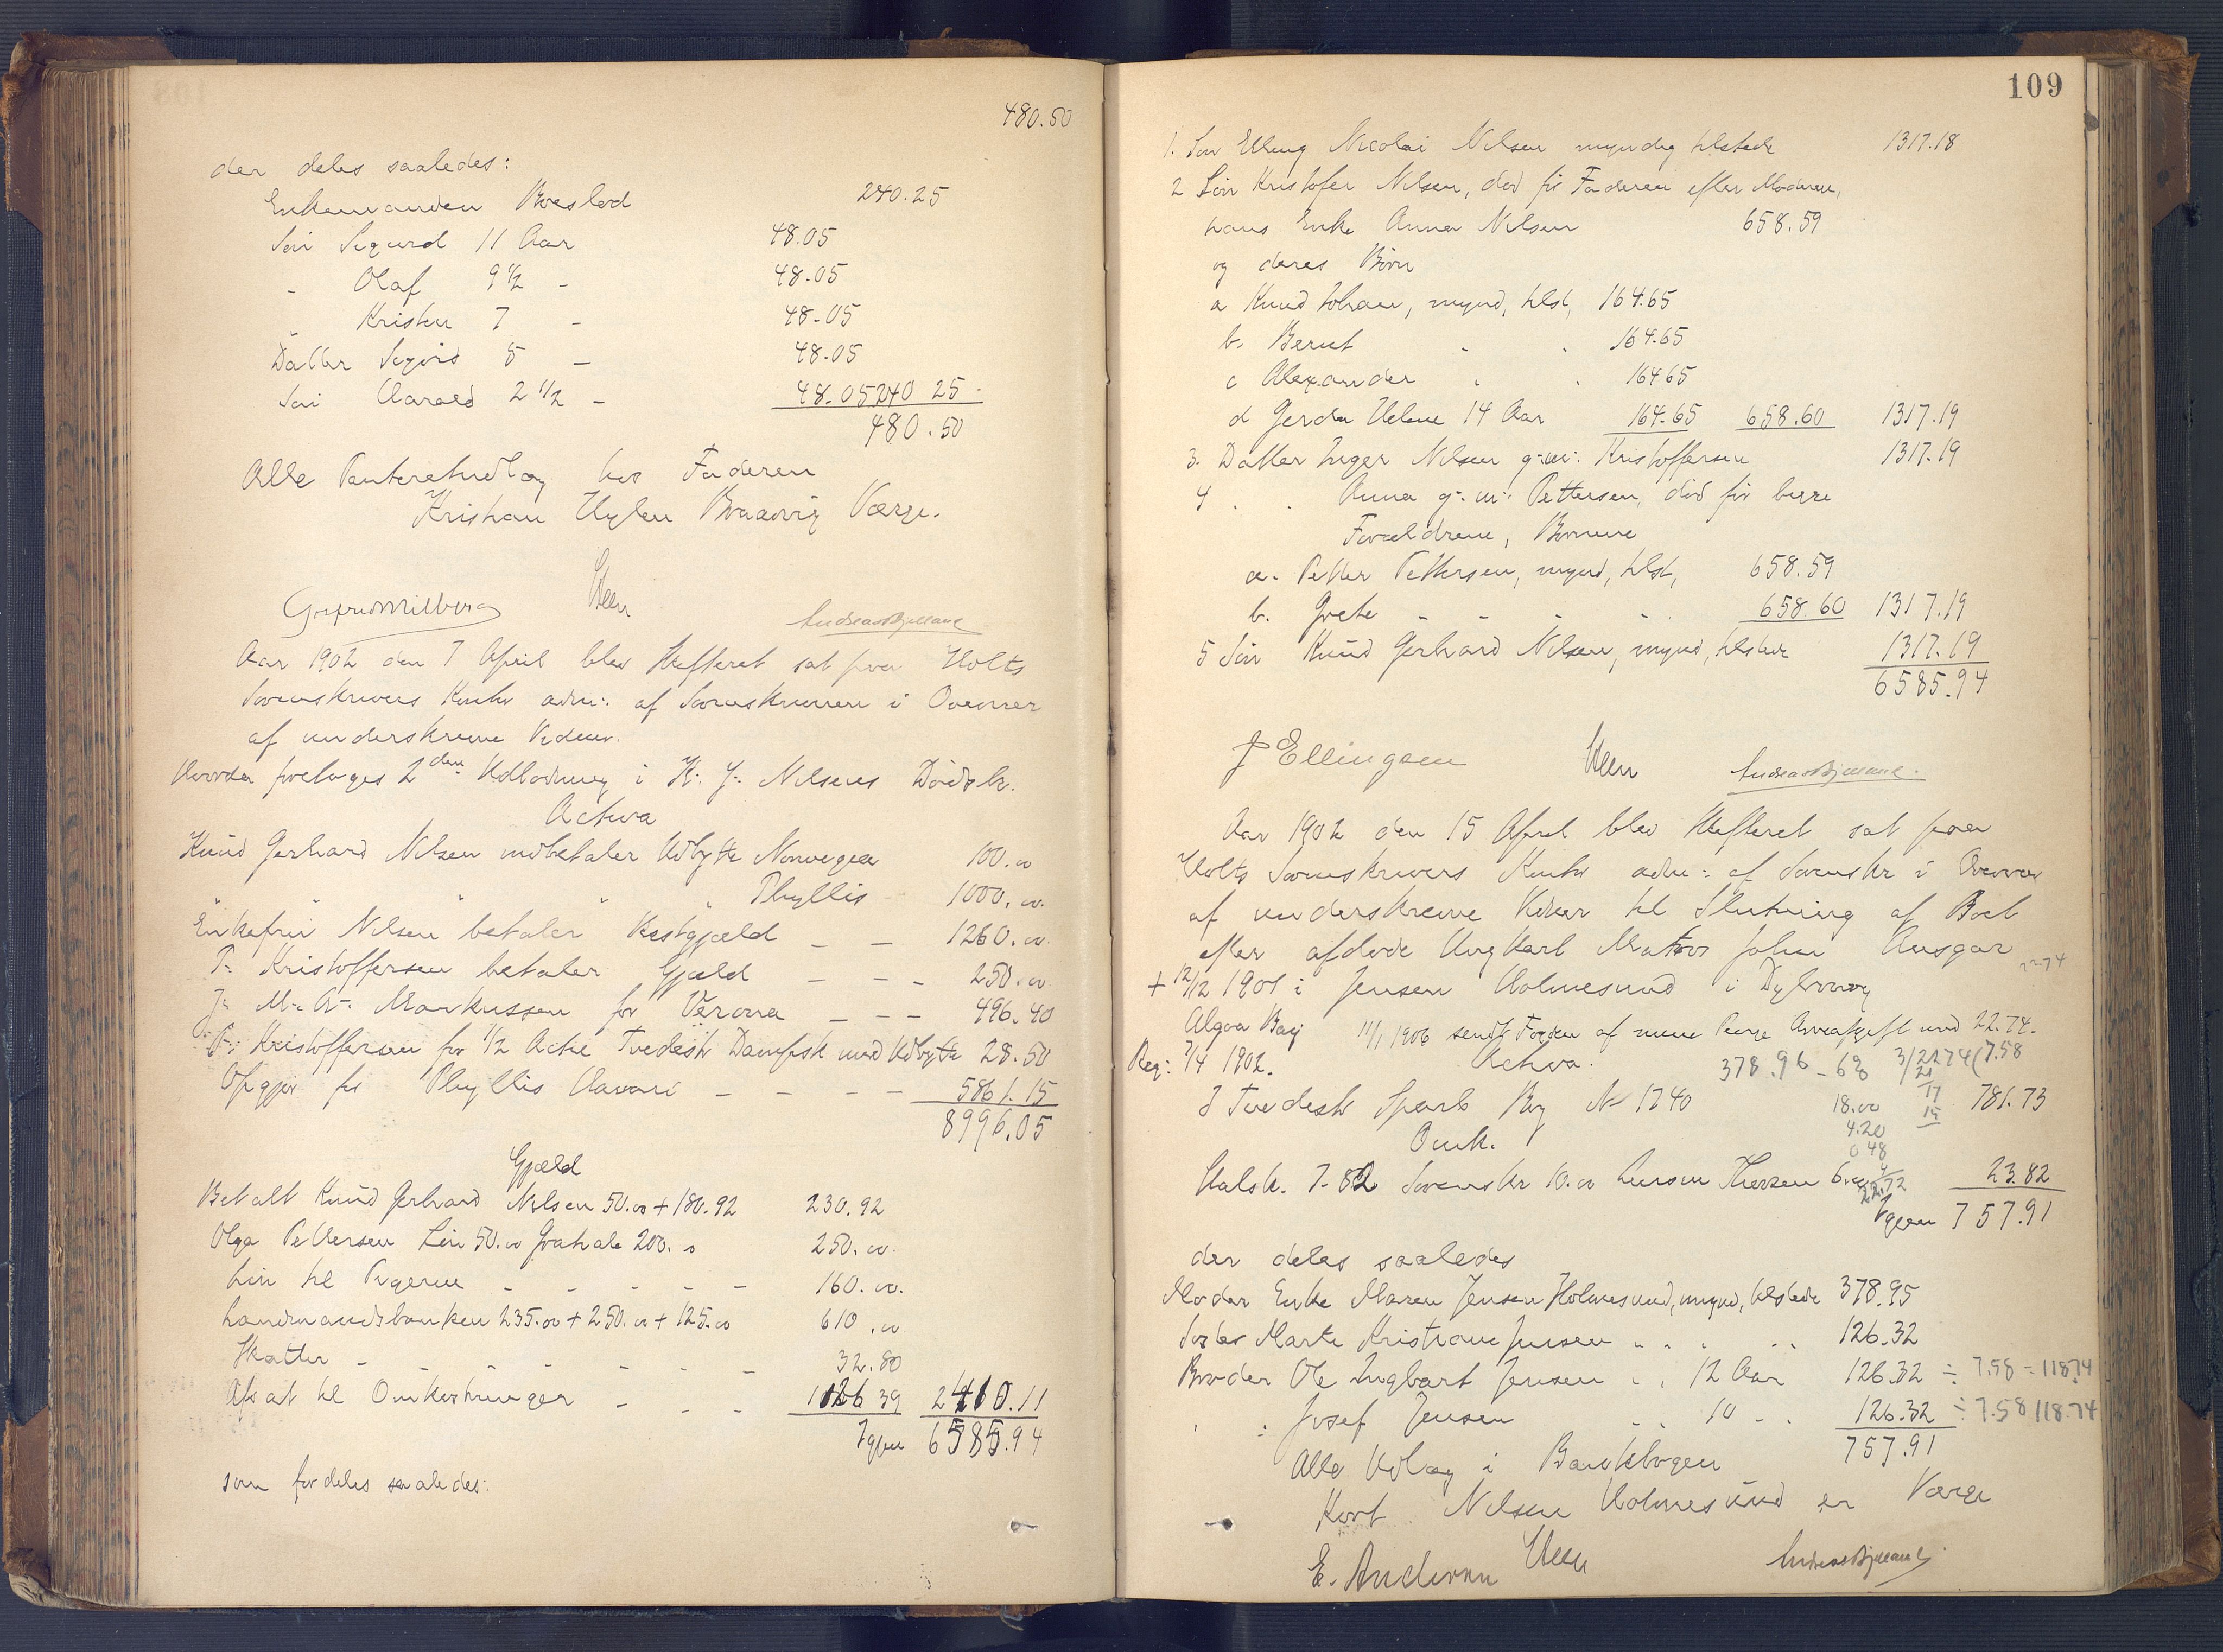 480.50
der deles saaledes:
Enkemanden Boeslod 240.25
Søn Sigurd 11 Aar 48.05
" Olaf 9 1/2 - 48.05
" Kristen 7 - 48.05
Datter Sigrid 5 - 48.05
Søn Harald 2 1/2 - 48.05 240 25
480.50
Alle Panteretudlæg hos Faderen
Kristian Braavig Værge.
Aar 1902 den 7 April blev Skifteret sat paa Holts
Sorenskrivers Kontor adm: af Sorenskriveren i Overvær
af underskrevne Vidner.
Hvorda foretages 2den Udlodning i K: J: Nilsens Dødsbo.
Activa
Knud Gerhard Nilsen indbetaler Udbytte Norvegia 100.00
" " " " " Phyllis 1000.00
Enkefru Nilsen betaler Restgjæld - - 1260.00
T: Kristoffersen betaler Gjæld - - - 250.00
J: M: A: Markussen for Verona - - - 496.40
T: Kristoffersen for 1/2 Actie Tvedestr Dampsk med Udbytte 28.50
Opgjør for Phyllis Havari - - - - 5861.15
8996.05
Gjæld
Betalt Knud Gerhard Nilsen 50.00 + 180.92 230.92
Olga Pettersen Løn 50.00 Gratiale 200.00 250.00
Løn til Pigerne - - - - - 160.00
Landmandsbanken 235.00 + 250.00 + 125.00 610.00
Skatter - - - - - - - 32.80
Afsat til Omkostninger - - - 1126 39 2410.11
Igjen 6585.94
som fordeles saaledes:
109
1. Søn Elling Nicolai Nilsen myndig tilstede 1317.18
2 Søn Kristofer Nilsen, død før Faderen efter Moderen,
hans Enke Anna Nilsen 658.59
og deres Børn
a Knud Johan, mynd, tilst, 164.65
b. Bernt " " 164.65
c Alexander " " 164.65
d Gerda Helene 14 Aar 164.65 658.60 1317.19
3. Datter Inger Nilsen g: m: Kristoffersen 1317.19
4 " " Anna g: m: Pettersen, død før begge
Forældrene, Børnene
a. Petter Pettersen, mynd, tilst, 658.59
b. Grete - - - - 658.60 1317.19
5 Søn Knud Gerhard Nilsen, mynd, tilstede 1317.19
6585.94
J Ellingsen
Aar 1902 den 15 April blev Skifteret sat paa
Holts Sorenskrivers Kontor adm: af Sorenskr i Overvær
af underskrevne Vidner til Slutning af Boet
efter afdøde Ungkarl Matros John Ansgar
+ 12/12 1901 i Jensen Holmesund i Dybvaag 22.74
Algoa Bay 11/1 1906 sendt Fogden af mine Penge Arveafgift med 22.74.
Reg: 7/4 1902. Activa. 378.96 - 6% 3/22.74(7.58
21
17
15
I Tvedestr Sparb Bog No 1740 781.73
18.00
4.20
0 48
22.72
Omk.
Halsk. 7.82 Sorenskr 10.00 Thorsen 6.00 23.82
Igjen 757.91
der deles saaledes
Moder Enke Maren Jensen Holmesund, mynd, tilstede 378.95
Søster Marte Kristiane Jensen " " " " 126.32
Broder Ole Ingbart Jensen " " 12 Aar 126.32 ÷ 7.58 = 118.74
" " Josef Jensen " " 10 - " 126.32 ÷ 7.58 118.74
757.91
Alle Udlæg i Bankbogen
Kort Nilsen Holmesund er Værge
E. Andersen